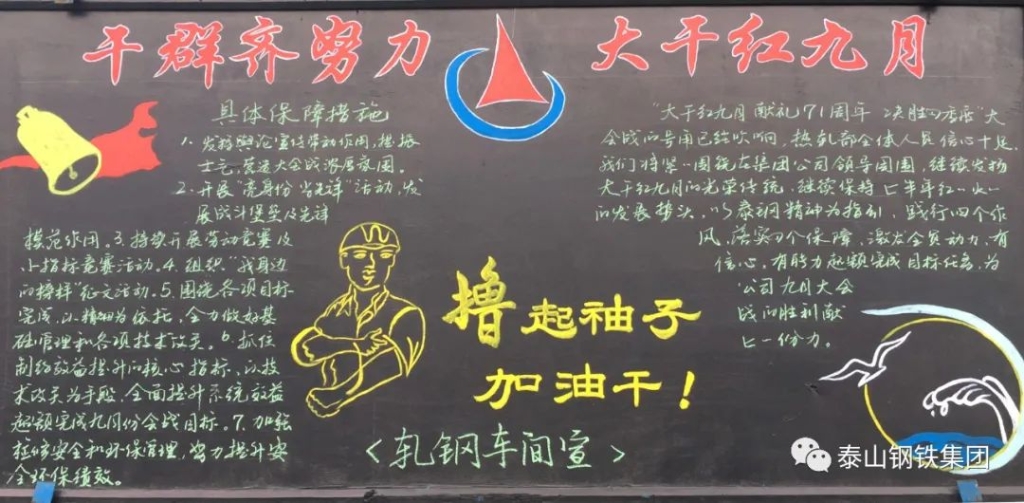 干群齐努力 大干红九月
具体保障措施
1、发挥舆论宣传带动作用，提振
士气，营造大会战浓厚氛围。
2、开展“亮身份 当先锋”活动，发
展战斗堡垒及先锋
模范作用。3.持续开展劳动竞赛及
小指标竞赛活动。4.组织“我身边
的榜样”征文活动。5.围绕各项目标
完成，以精细为依托，全力做好基
础管理和各项技术攻关。6.抓住
制约效益提升的核心指标，以技
术攻关为手段，全面提升系统效益
超额完成九月份会战目标。7.加强
检修安全和环保管理，努力提升安
全环保绩效。
“大干红九月 献礼71周年 决胜四季度”大
会战的号角已经吹响，热轧部全体人员信心十足
我们将紧紧围绕在集团公司领导周围，继续发扬
大干红九月的光荣传统，继续保持上半年红红火火
的发展势头，以泰钢精神为指引，践行四个作
风，落实四个保障，激发全员动力，有
信心，有能力超额完成目标任务，为
公司九月大会
战的胜利献
上一份力。
撸起袖子
加油干！
<轧钢车间宣>
泰山钢铁集团